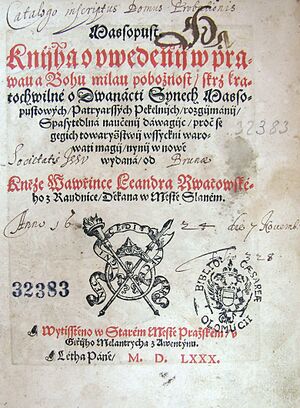 Catalogo inscriptus Domus Probationis
Massopust
Knijha o vwedenij w pra-
wau a Bohu milau pobožnost / skrz kra-
tochwilné o Dwanácti Synech Masso-
pustowých / Patryarssých Pekelnijch / rozgijmánij /
Spasytedlná naučenij dáwagijc / proč se
gegich towaryšstwij wssyckni waro-
wati magij / nynij w nowě
wydaná / od
Societatis Jesu
Brunae
32383
Kněze Wawřince Leandra Rwačowské-
ho z Raudnice / Děkana w Městě Slaném.
Anno 16 24 die 7 Novemb.
328
32383
BIBLIOTH. CAESAREA
OLOMUCII
Wytisstěno w Starém Městě Pražském / v
Giřijho Melantrycha z Awentýnu.
Létha Páně / M. D. LXXX.